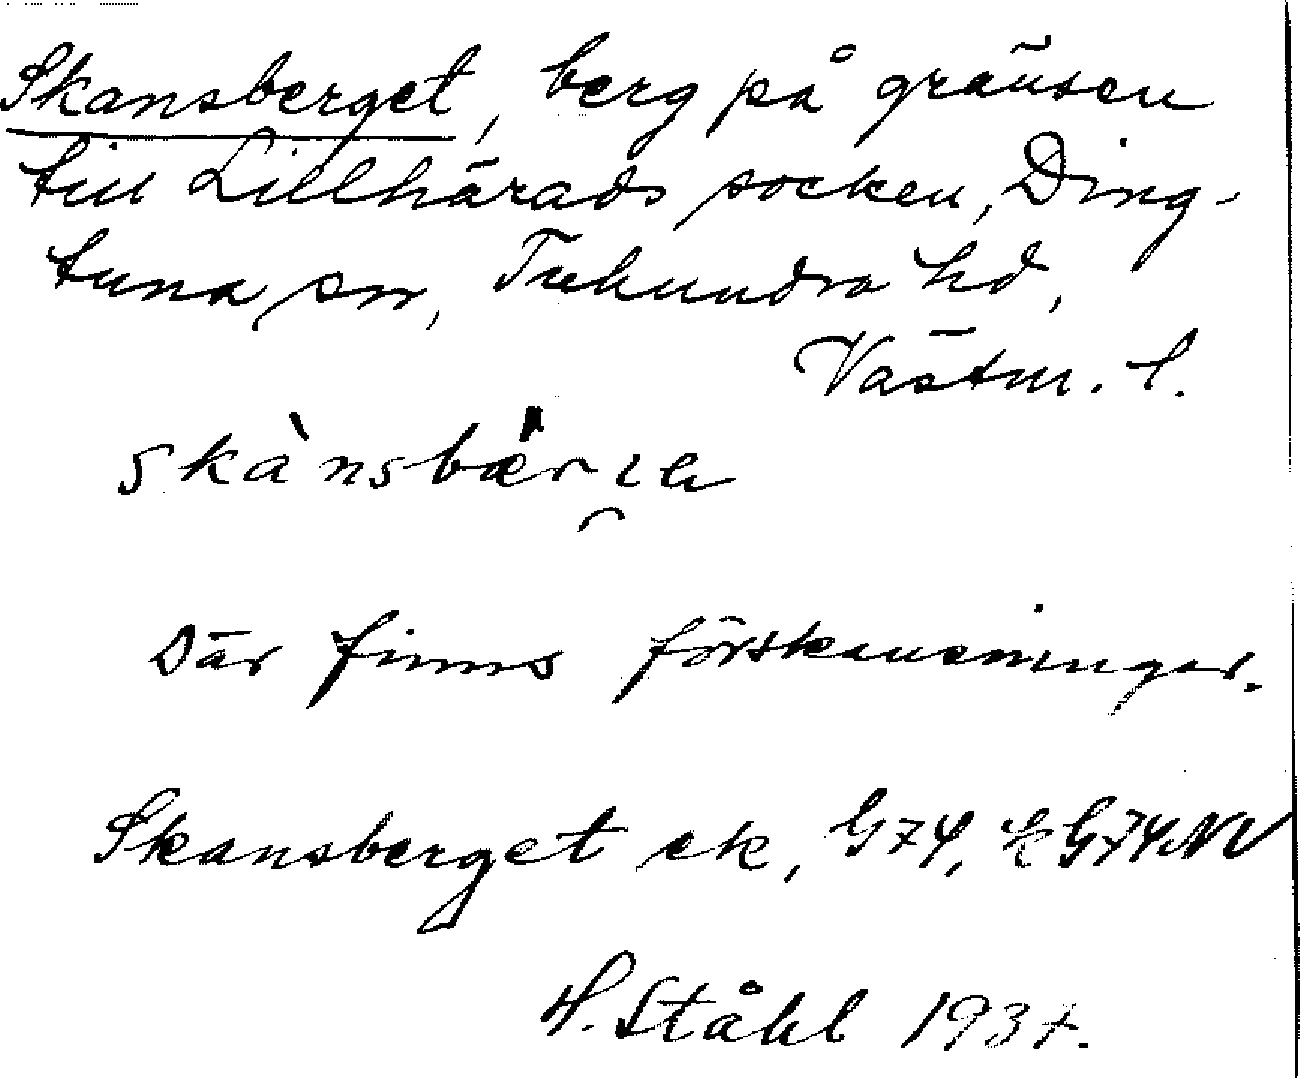 Skansberget, berg på gränsen
till Lillhärads socken, Ding-
tuna sn, Tuhundra hd,
Västm. l.
skànsbær
Där finns förskansningar.
Skansberget ek, G74, G74NV
H. Ståhl 1937.